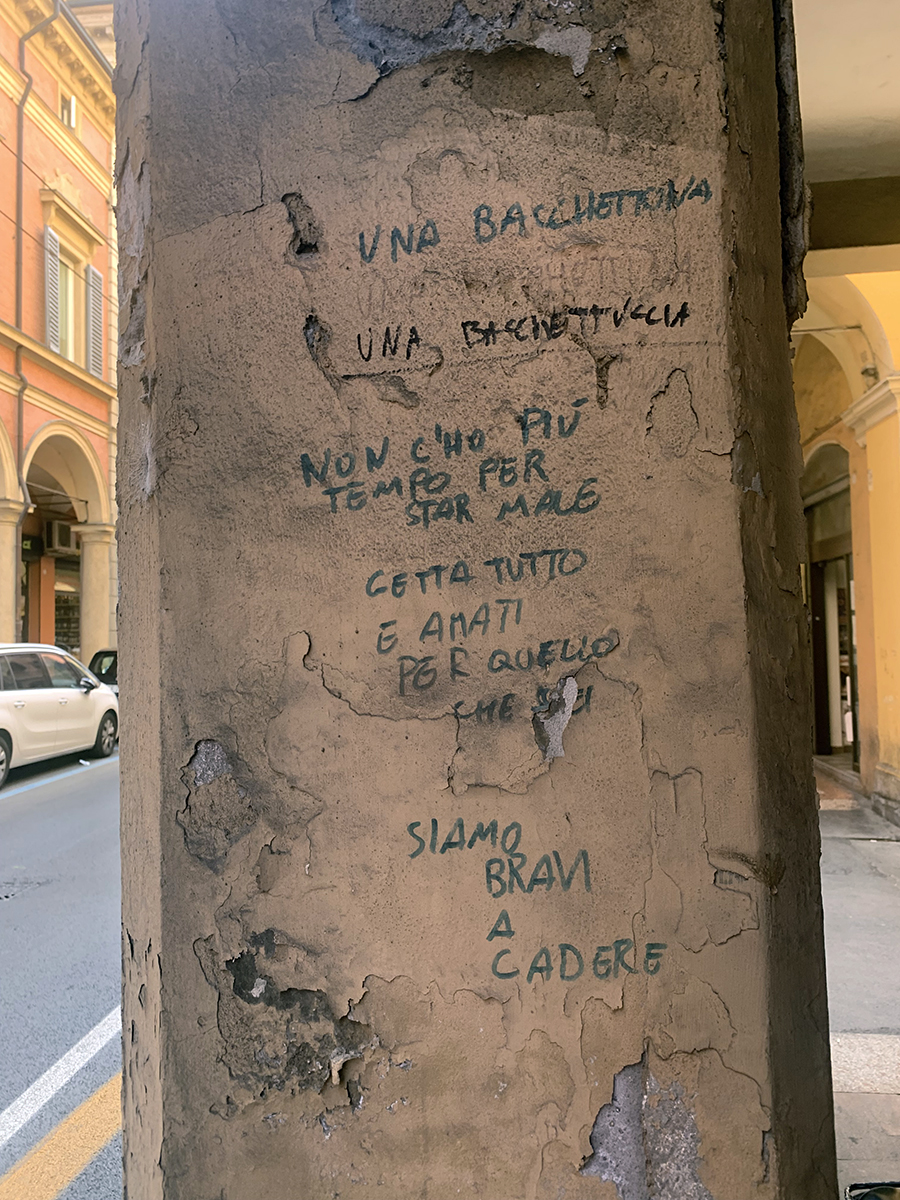 UNA BACCHETTINA
UNA BACCHETTUCCIA
NON C'HO PIÚ
TEMPO PER
STAR MALE
GETTA TUTTO
E AMATI
PER QUELLO
CHE SEI
SIAMO
BRAVI
A
CADERE